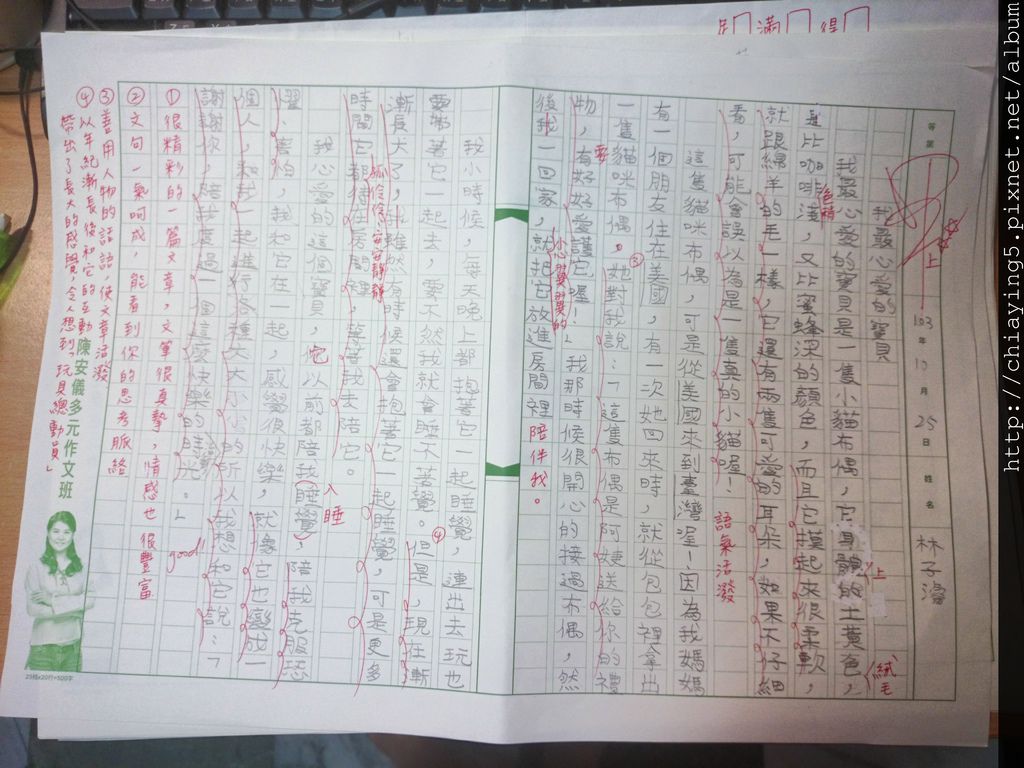 足 滿 得
等第
上
103年10月25日
姓名 林子濬
我最心愛的寶貝
我最心愛的寶貝是一隻小貓布偶，它身體上土黃色，
絨毛
色稍
比咖啡淺，又比蜜蜂深的顏色，而且它摸起來很柔軟，
就跟綿羊的毛一樣，它還有兩隻可愛的耳朵，如果不仔細
看，可能會誤以為是一隻真的小貓喔！
語氣活潑
這隻貓咪布偶，可是從美國來到臺灣喔！因為我媽媽
有一個朋友住在美國，有一次她回來時，就從包包裡拿出
一隻貓咪布偶。她對我說：「這隻布偶是阿姨送給你的禮
物，要有好好愛護它喔！」我那時候很開心的接過布偶，然
③
小心翼翼的
後我一回家，就把它放進房間裡陪伴我。
我小時候，每天晚上都抱著它一起睡覺，連出去玩也
要帶著它一起去，要不然我就會睡不著覺。但是，現在漸
④
漸長大了，雖然有時候還會抱著它一起睡覺，可是更多
孤伶伶、安安靜靜
時間它都待在房間裡，等著我去陪它。
入睡
我心愛的這個寶貝，它以前都陪我睡覺，陪我克服恐
懼、害怕，我和它在一起，感覺很快樂，就像它也變成一
個人，和我一起進行各種大大小小的所以我想和它說：「
謝謝你，陪我度過一個這麼快樂的時光。」
good!
①很精彩的一篇文章，文筆很真摯，情感也很豐富
②文句一氣呵成，能看到你的思考脈絡
③善用人物的話語使文章活潑
④以年紀漸長後和它的互動
帶出了長大的感覺，令人想到「玩具總動員」
陳安儀多元作文班
25格×20行=500字
http://chiaying5.pixnet.net/album